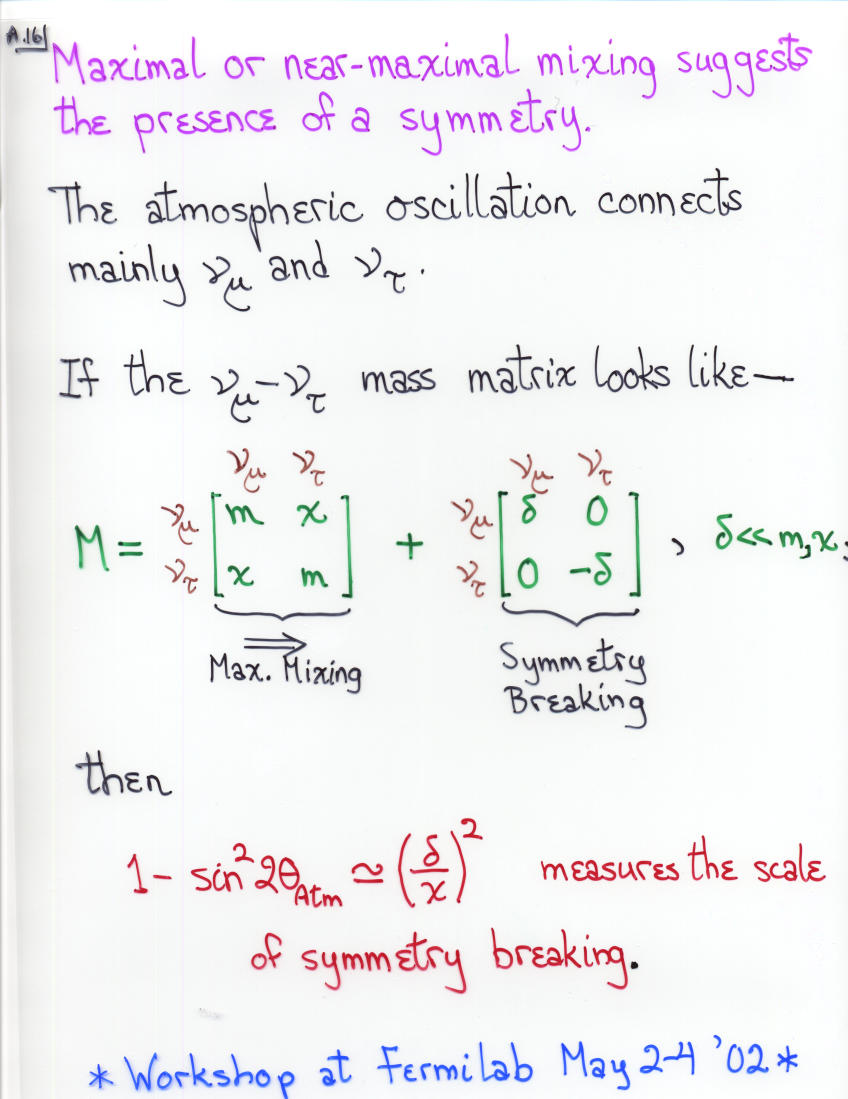 A.16
Maximal or near-maximal mixing suggests
the presence of a symmetry.
The atmospheric oscillation connects
mainly νμ and ντ.
If the νμ-ντ mass matrix looks like—
νμ ντ νμ ντ
M = νμ [ m x ] + νμ [ δ 0 ] , δ<<m,x;
ντ [ x m ] ντ [ 0 -δ ]
⟹ Symmetry
Max. Mixing Breaking
then
1- sin²2θAtm ≃ (δ/x)² measures the scale
of symmetry breaking.
* Workshop at Fermilab May 2-4 '02 *